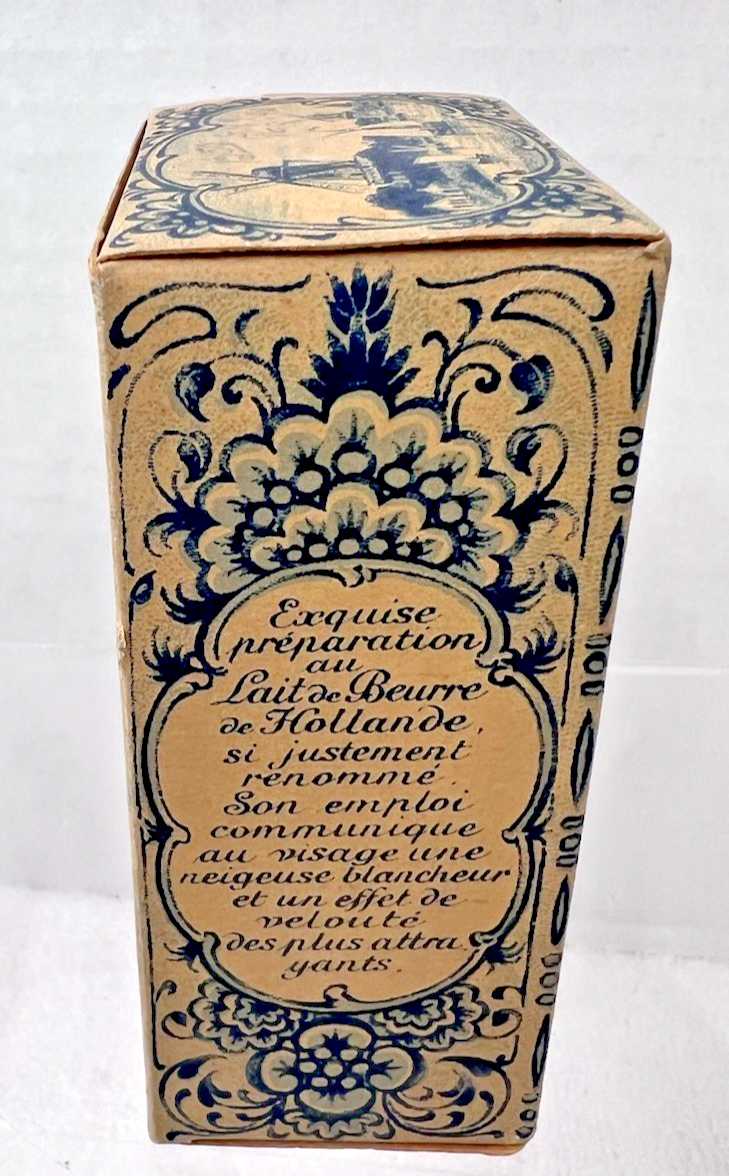 Exquise
préparation
au
Lait de Beurre
de Hollande,
si justement
renommé.
Son emploi
communique
au visage une
neigeuse blancheur
et un effet de
velouté
des plus attra
yants.